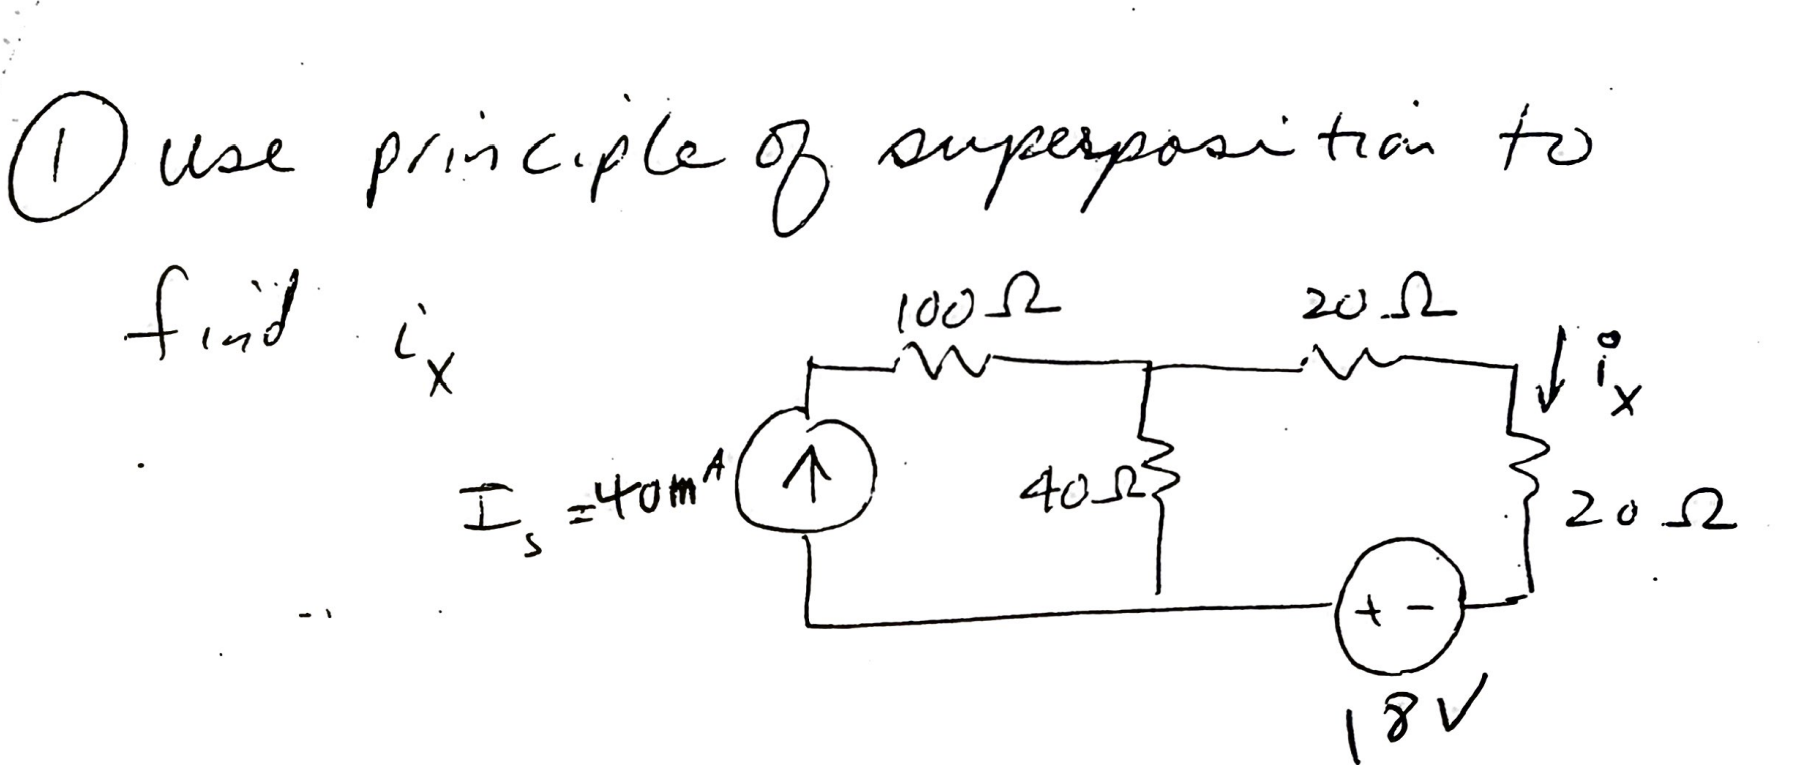 ① use principle of superposition to
find iₓ
100Ω 20Ω
iₓ
Iₛ = 40mA
40Ω
20Ω
+ -
18V